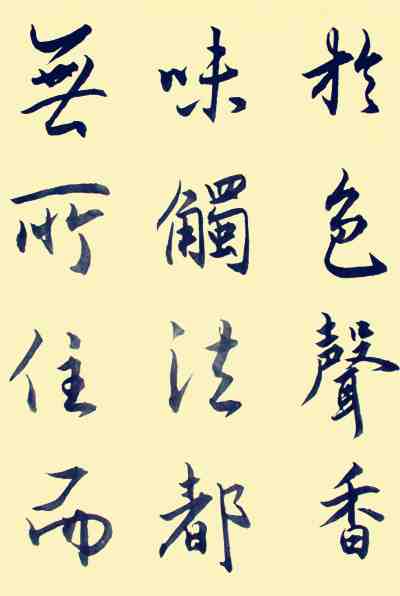 於色聲香
味觸法都
無所住而